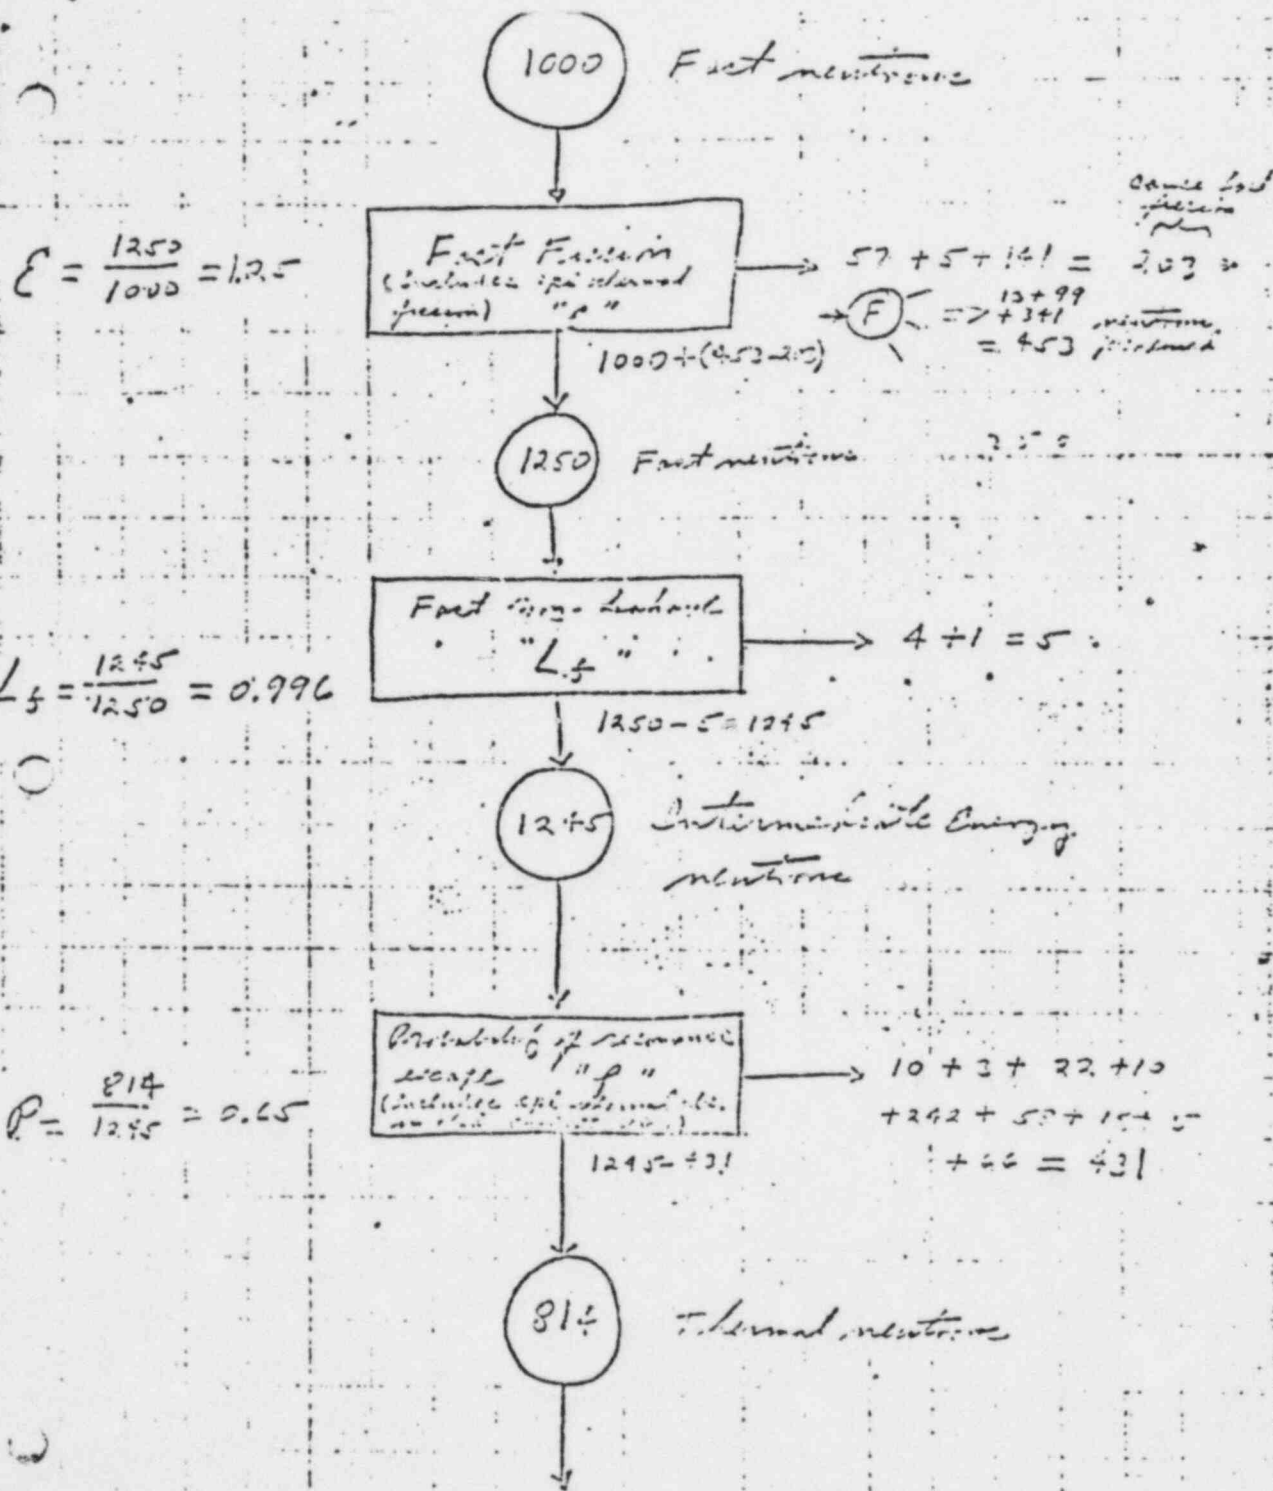 1000 Fast neutrons
Fast Fission
(includes epi thermal
fission) "ε"
ε = 1250 / 1000 = 1.25
57 + 5 + 141 = 203
cause fast
fission
→ F => 13 + 99
+ 341 neutrons
= 453 produced
1000 + (453-203)
1250 Fast neutrons
Fast non-leakage
"L f"
4 + 1 = 5
L f = 1245 / 1250 = 0.996
1250 - 5 = 1245
1245 Intermediate Energy
neutrons
Probability of resonance
escape "p"
(includes epi thermal abs.
10 + 3 + 22 + 10
+ 242 +
= 431
P = 814 / 1245 = 0.65
1245 - 431
814 Thermal neutrons